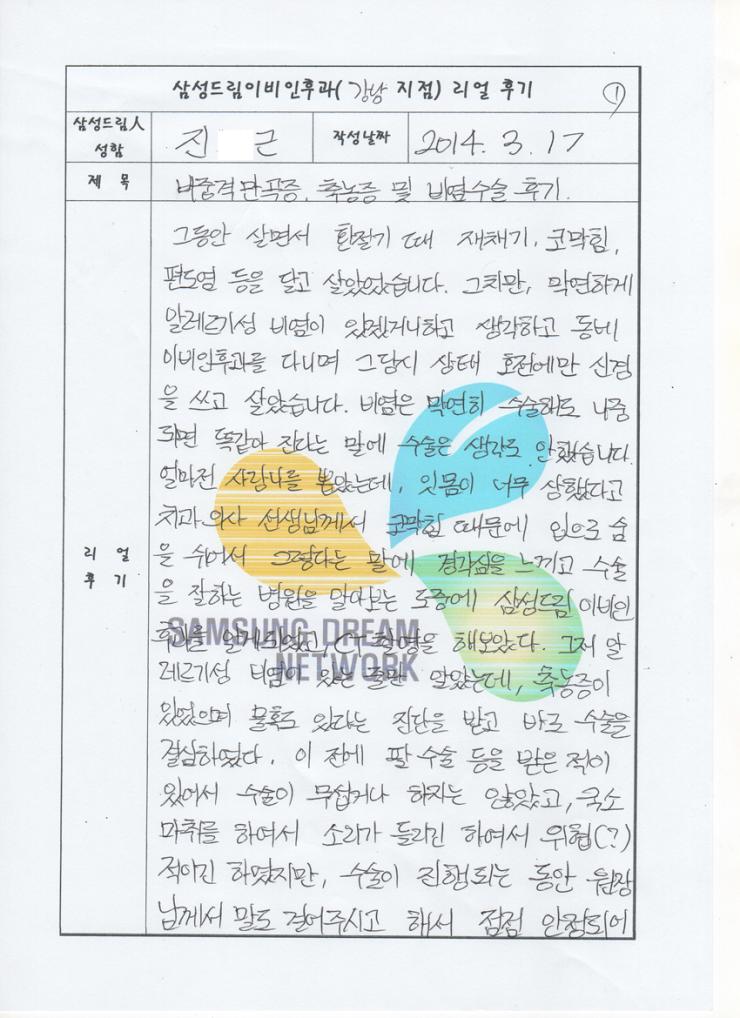 삼성드림이비인후과(강남 지점) 리얼 후기 ①
삼성드림人 성함 진 근 작성날짜 2014. 3. 17
제 목 비중격만곡증, 축농증 및 비염수술 후기.
리 얼 후 기
그동안 살면서 환절기 때 재채기, 코막힘,
편도염 등을 달고 살았었습니다. 그치만, 막연하게
알레르기성 비염이 있겠거니하고 생각하고 동네
이비인후과를 다니며 그당시 상태 호전에만 신경
을 쓰고 살았습니다. 비염은 막연히 수술해도 나중
되면 똑같아 진다는 말에 수술은 생각도 안했습니다.
얼마전 사랑니를 뽑았는데, 잇몸이 너무 상했다고
치과 의사 선생님께서 코막힘 때문에 입으로 숨
을 쉬어서 그렇다는 말에 경각심을 느끼고 수술
을 잘하는 병원을 알아보는 도중에 삼성드림 이비인
후과를 알게되었고, CT 촬영을 해보았다. 그저 알
레르기성 비염이 있는 줄만 알았는데, 축농증이
있었으며 물혹도 있다는 진단을 받고 바로 수술을
결심하였다. 이 전에 팔 수술 등을 받은 적이
있어서 수술이 무섭거나 하지는 않았고, 국소
마취를 하여서 소리가 들리긴 하여서 위협(?)
적이긴 하였지만, 수술이 진행되는 동안 원장
님께서 말도 걸어주시고 해서 점점 안정되어
SAMSUNG DREAM
NETWORK